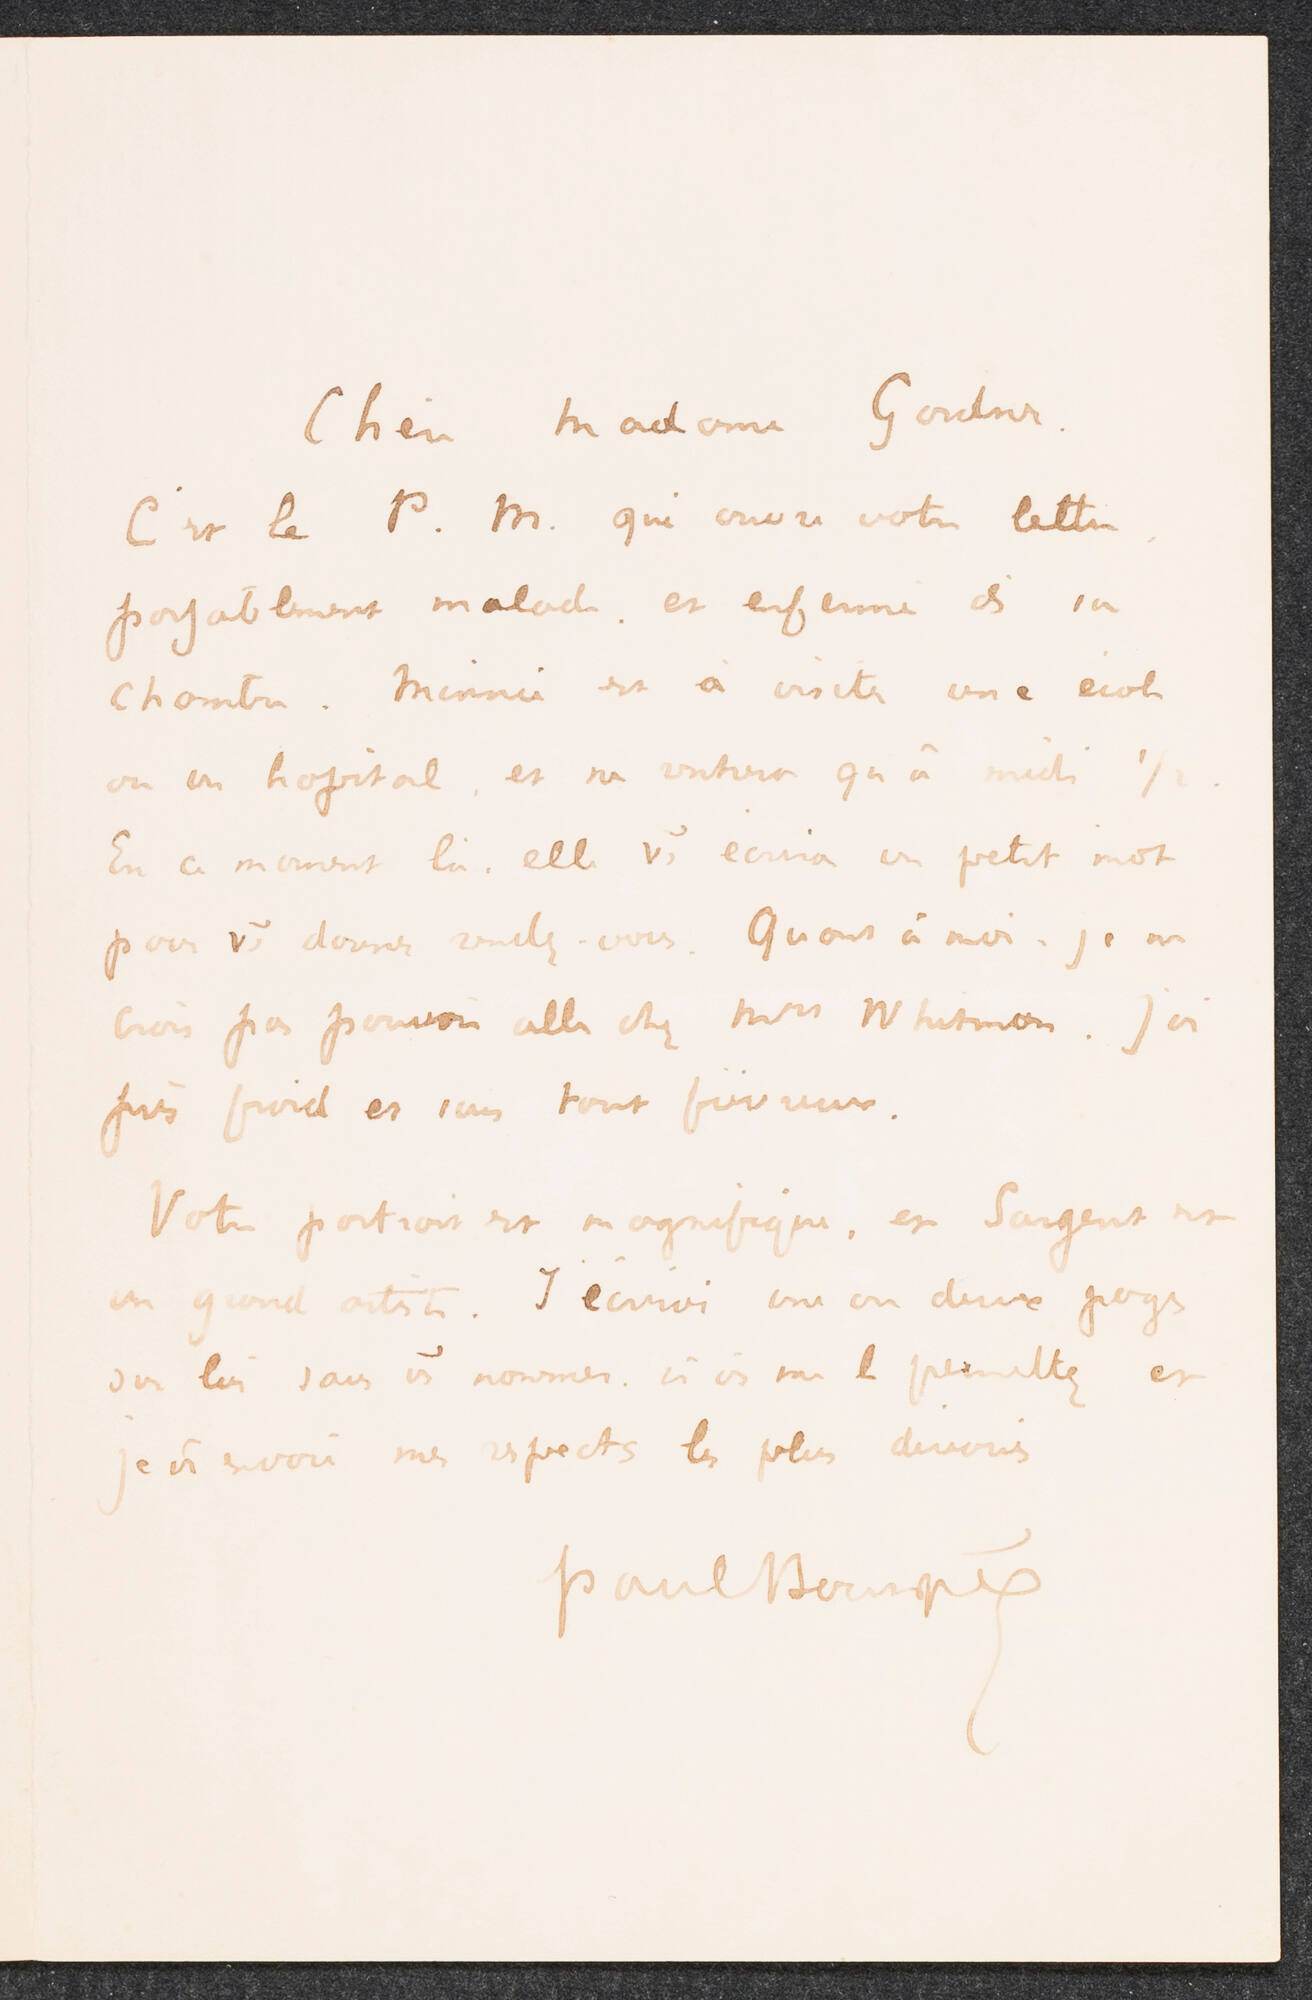 Chère Madame Gardner.
C'est le P. M. qui ouvre votre lettre,
passablement malade. et enfermé ds sa
chambre. Minnie est à visiter une école
ou un hopital, et ne rentrera qu'à midi 1/2.
En ce moment là. elle vs écrira un petit mot
pour vs donner rendez-vous. Quant à moi. je ne
crois pas pouvoir aller chez Mrs Whitman. J'ai
pris froid et suis tout fiévreux.
Votre portrait est magnifique, et Sargent est
un grand artiste. J'écrirai une ou deux pages
sur lui sans vs nommer. si vs me le permettez et
je vs envoie mes respects les plus dévoués
Paul Bourget